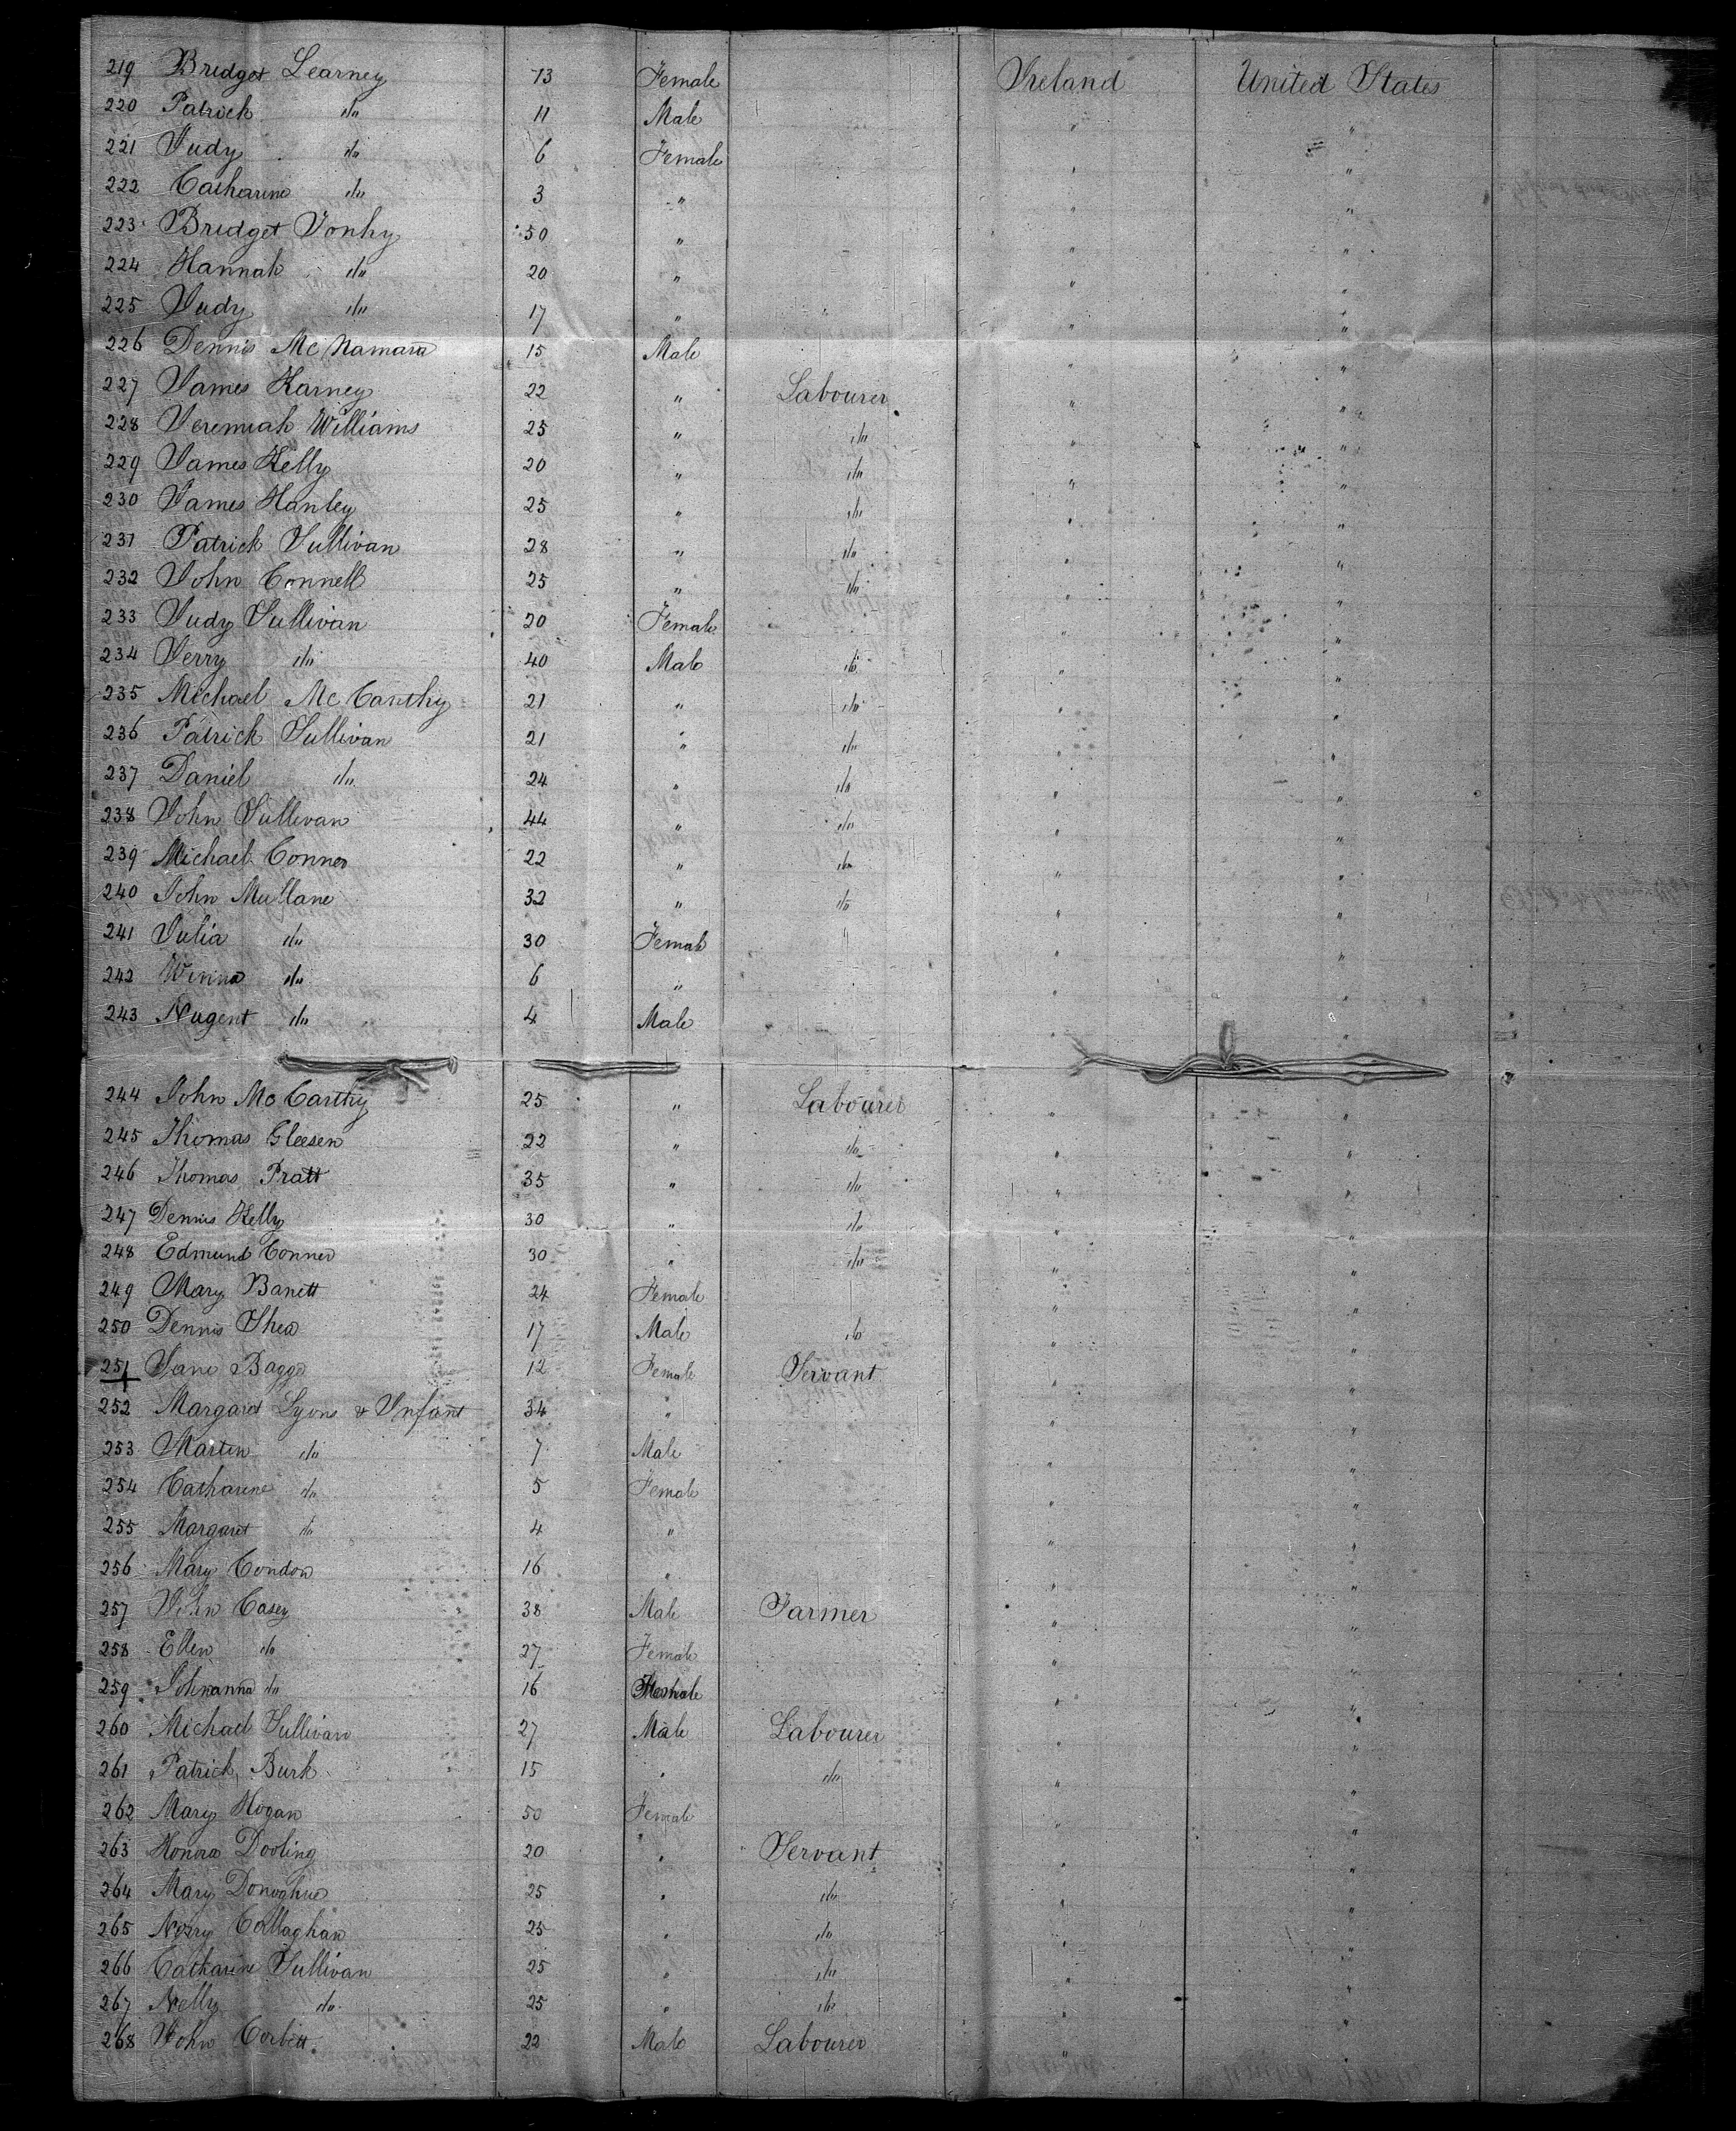 219 Bridget Learney 13 Female Ireland United States
220 Patrick do 11 Male " "
221 Judy do 6 Female " "
222 Catharine do 3 " " "
223 Bridget Tonhy 50 " " "
224 Hannah do 20 " " "
225 Judy do 17 " " "
226 Dennis McNamara 15 Male " "
227 James Karney 22 " Labourer " "
228 Jeremiah Williams 25 " do " "
229 James Kelly 20 " do " "
230 James Hanley 25 " do " "
231 Patrick Sullivan 28 " do " "
232 John Connell 25 " do " "
233 Judy Sullivan 20 Female " "
234 Jerry do 40 Male do " "
235 Michael McCarthy 21 " do " "
236 Patrick Sullivan 21 " do " "
237 Daniel do 24 " do " "
238 John Sullivan 44 " do " "
239 Michael Conner 22 " do " "
240 John Mullane 32 " do " "
241 Julia do 30 Female " "
242 Winna do 6 " " "
243 Nugent do 4 Male " "
244 John McCarthy 25 " Labourer " "
245 Thomas Gleesen 22 " do " "
246 Thomas Pratt 35 " do " "
247 Dennis Kelly 30 " do " "
248 Edmund Conner 30 " do " "
249 Mary Barrett 24 Female " "
250 Dennis Shea 17 Male do " "
251 Jane Bagge 12 Female Servant " "
252 Margaret Lyons & Infant 34 " " "
253 Martin do 7 Male " "
254 Catharine do 5 Female " "
255 Margaret do 4 " " "
256 Mary Condon 16 " " "
257 John Casey 38 Male Farmer " "
258 Ellen do 27 Female " "
259 Johnanna do 16 Female " "
260 Michael Sullivan 27 Male Labourer " "
261 Patrick Burk 15 " do " "
262 Mary Hogan 50 Female " "
263 Honora Dooling 20 " Servant " "
264 Mary Donoghue 25 " do " "
265 Norry Callaghan 25 " do " "
266 Catharine Sullivan 25 " do " "
267 Nelly do 25 " do " "
268 John Corbitt 22 Male Labourer " "